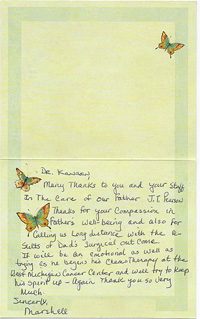 Dr. Kawaery,
Many Thanks to you and your Staff
In The Care of our Father J.T. Person
Thanks for your Compassion in
Fathers Well-being and also for
Calling us Long distance with the re-
sults of Dad's Surgical out come.
It will be an emotional as well as
trying as he begins his ChemoTherapy at the
West Michigan Cancer Center and we'll try to keep
his spirit up - Again Thank you so Very
Much.
Sincerely,
Marshell